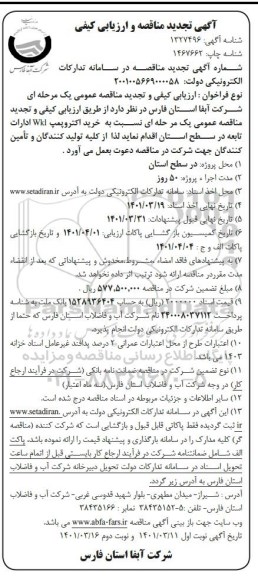 آگهی تجدید مناقصه و ارزیابی کیفی
شناسه آگهی: ۱۳۲۷۴۹۶
شناسه چاپ: ۱۴۶۷۶۶۲
شرکت آبفا فارس
شماره آگهی تجدید مناقصه در سامانه تدارکات
الکترونیکی دولت: ۲۰۰۱۰۰۵۶۶۹۰۰۰۰۵۸
نوع فراخوان: ارزیابی کیفی و تجدید مناقصه عمومی یک مرحله ای
شرکت آبفا استان فارس در نظر دارد از طریق ارزیابی کیفی و تجدید
مناقصه عمومی یک مرحله ای نسبت به خرید الکتروپمپ Wki ادارات
تابعه در سطح استان اقدام نماید لذا از کلیه تولید کنندگان و تأمین
کنندگان جهت شرکت در مناقصه دعوت بعمل می آورد.
۱) محل پروژه: در سطح استان
۲) مدت اجراء پروژه: ۵۰ روز
۳) محل اخذ اسناد: سامانه تدارکات الکترونیکی دولت به آدرس www.setadiran.ir
۴) تاریخ نهایی اخذ اسناد: ۱۴۰۱/۰۳/۱۹
۵) تاریخ نهایی قبول پیشنهادات: ۱۴۰۱/۰۳/۳۱
۶) تاریخ کمیسیون باز گشایی پاکات ارزیابی: ۱۴۰۱/۰۴/۰۱ و تاریخ بازگشایی
پاکات الف و ج: ۱۴۰۱/۰۴/۰۴
۷) به پیشنهادهای فاقد امضاء مشروط، مخدوش و پیشنهاداتی که بعد از انقضاء
مدت مقرر در مناقصه ارائه شود ترتیب اثر داده نخواهد شد.
۸) مبلغ تضمین شرکت در مناقصه ۵۷۷,۵۰۰,۰۰۰ ریال.
۹) قیمت اسناد ۲۰۰۰۰۰۰ (ریال) به حساب ۱۵۲۸۹۳۶۴۰۴ بانک ملت به شناسه
پرداخت ۲۴۰۰۰۸۰۳۷۱۱۲ در وجه شرکت آب و فاضلاب استان فارس که حتما از
طریق سامانه تدارکات الکترونیکی دولت انجام پذیرد.
۱۰) اعتبارات طرح از محل اعتبارات عمرانی ۲ درصد پدافند غیرعامل اسناد خزانه
۱۴۰۳ می باشد
۱۱) نوع تضمین شرکت در مناقصه ضمانتنامه بانکی (شرکت در فرآیند ارجاع
کار) در وجه شرکت آب و فاضلاب استان فارس (سه ماه اعتبار)
۱۲) سایر اطلاعات و جزئیات مربوطه در اسناد مناقصه درج شده است.
۱۳) این آگهی در سامانه تدارکات الکترونیکی دولت به آدرس www.setadiran.
ir ثبت گردیده فقط پاکاتی قابل قبول و بازگشایی است که شرکت کننده (مناقصه
گر) کلیه مدارک را در سامانه بارگذاری و پیشنهاد قیمت را ارائه نموده باشد. پاکت
الف شامل ضمانتنامه شرکت در فرآیند ارجاع کار بایستی قبل از اتمام ساعت
تحویل اسناد در سامانه تدارکات دولت تحویل دبیرخانه شرکت آب و فاضلاب
استان فارس به آدرس زیر گردد.
آدرس: شیراز- میدان مطهری- بلوار شهید قدوسی غربی- شرکت آب و فاضلاب
استان فارس- تلفن: ۵-۳۸۴۳۵۱۵۲ نمابر: ۳۸۴۳۵۱۶۶
وب سایت جهت باز بینی آگهی مناقصه www.abfa-fars.ir می باشد.
تاریخ آگهی نوبت اول ۱۴۰۱/۰۳/۱۱ و نوبت دوم ۱۴۰۱/۰۳/۱۶
شرکت آبفا استان فارس